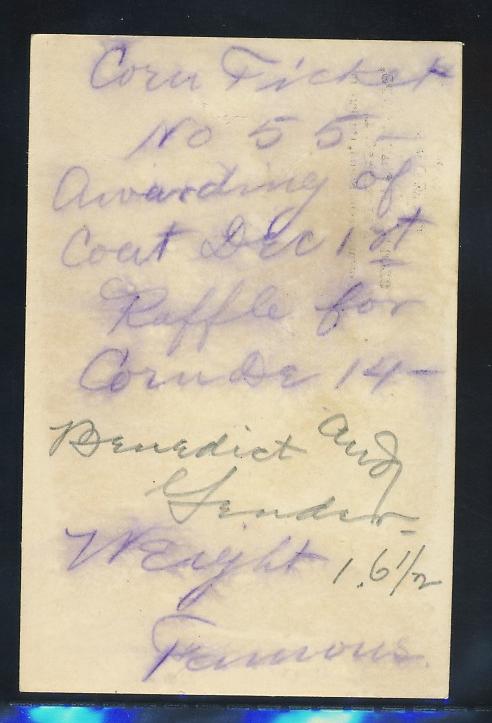 Corn Ticket
No 55 -
Awarding of
Coat Dec 1st
Raffle for
Corn De 14 -
Benedict and
Gender -
Weight 1.6 1/2
Famous.